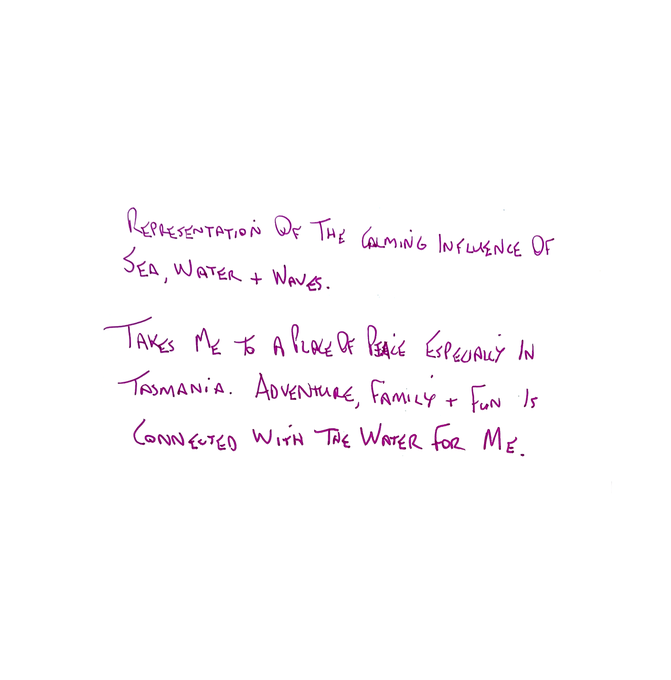 Representation Of The Calming Influence Of
Sea, Water + Waves.
Takes Me to A Place Of Peace Especially In
Tasmania. Adventure, Family + Fun Is
Connected With The Water For Me.